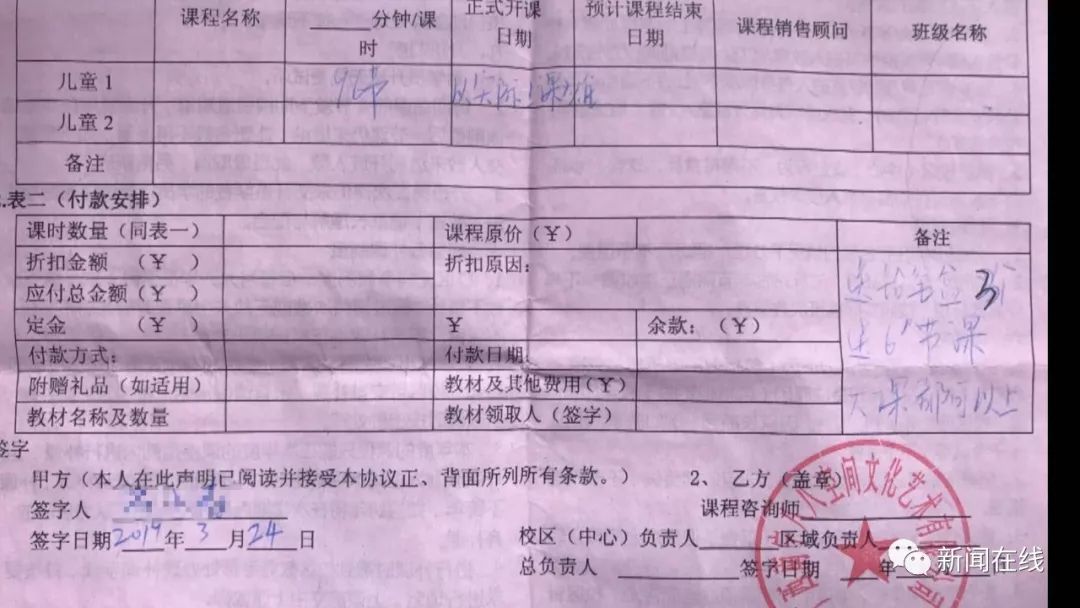 课程名称 ____分钟/课时 正式开课日期 预计课程结束日期 课程销售顾问 班级名称
儿童 1 96节
儿童 2
备注
表二（付款安排）
课时数量（同表一） 课程原价（¥） 备注
折扣金额 （¥） 折扣原因：
应付总金额（¥）
定金 （¥） ¥ 余款：（¥）
送6节课
付款方式： 付款日期：
附赠礼品（如适用） 教材及其他费用（¥）
大课都可以上
教材名称及数量 教材领取人（签字）
签字
甲方（本人在此声明已阅读并接受本协议正、背面所列所有条款。） 2、 乙方（盖章）
签字人 课程咨询师
签字日期2019年3月24日 校区（中心）负责人 区域负责人
总负责人 签字日期 年
空间文化艺术有限公司
新闻在线